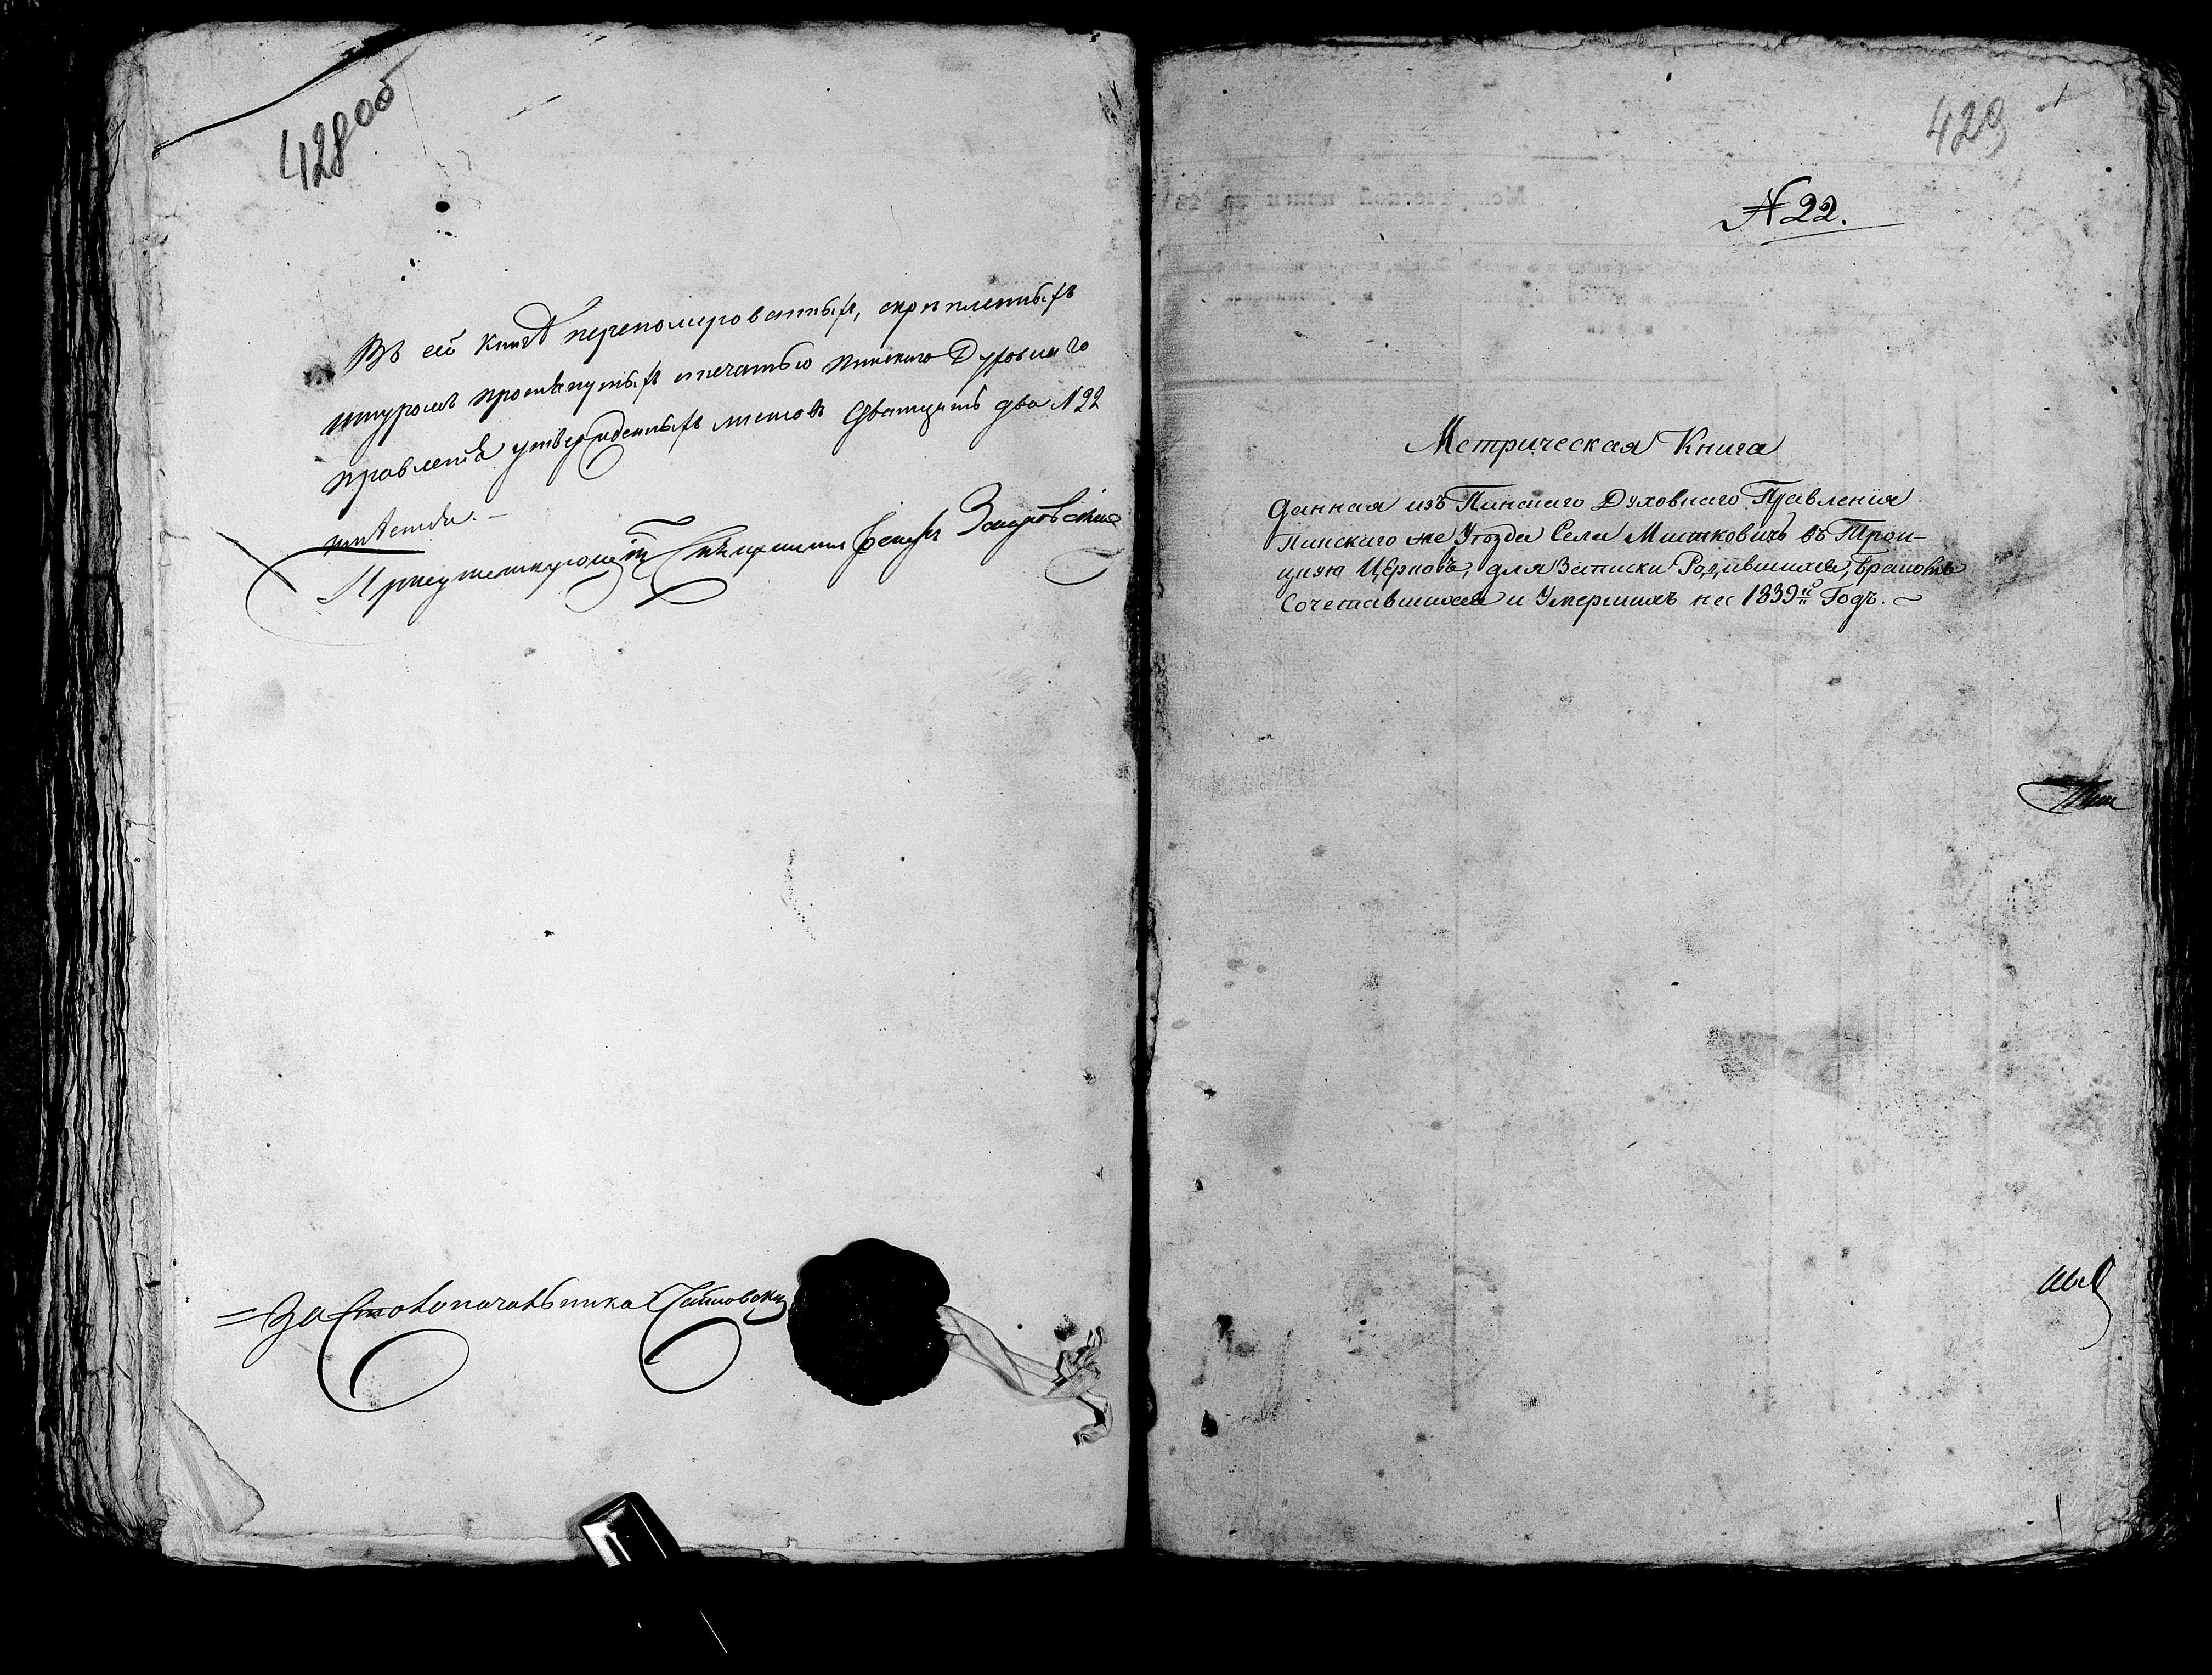 428 об
Въ сей книгѣ переномерованныхъ, скрѣпленныхъ
шнуромъ протянутыхъ и печатью Пинскаго Духовнаго
правленія утвержденныхъ листовъ двадцать два N 22
Присутствующій Священникъ Заировскій
За Столоначальника
429
1
N 22.
Метрическая Книга
данная изъ Пинскаго Духовнаго Правленія
Пинскаго же Уѣзда Села Митковичъ въ Трои-
цкую Церковь, для Записки Родившихся, Бракомъ
Сочетавшихся и Умершихъ на 1839й Годъ.